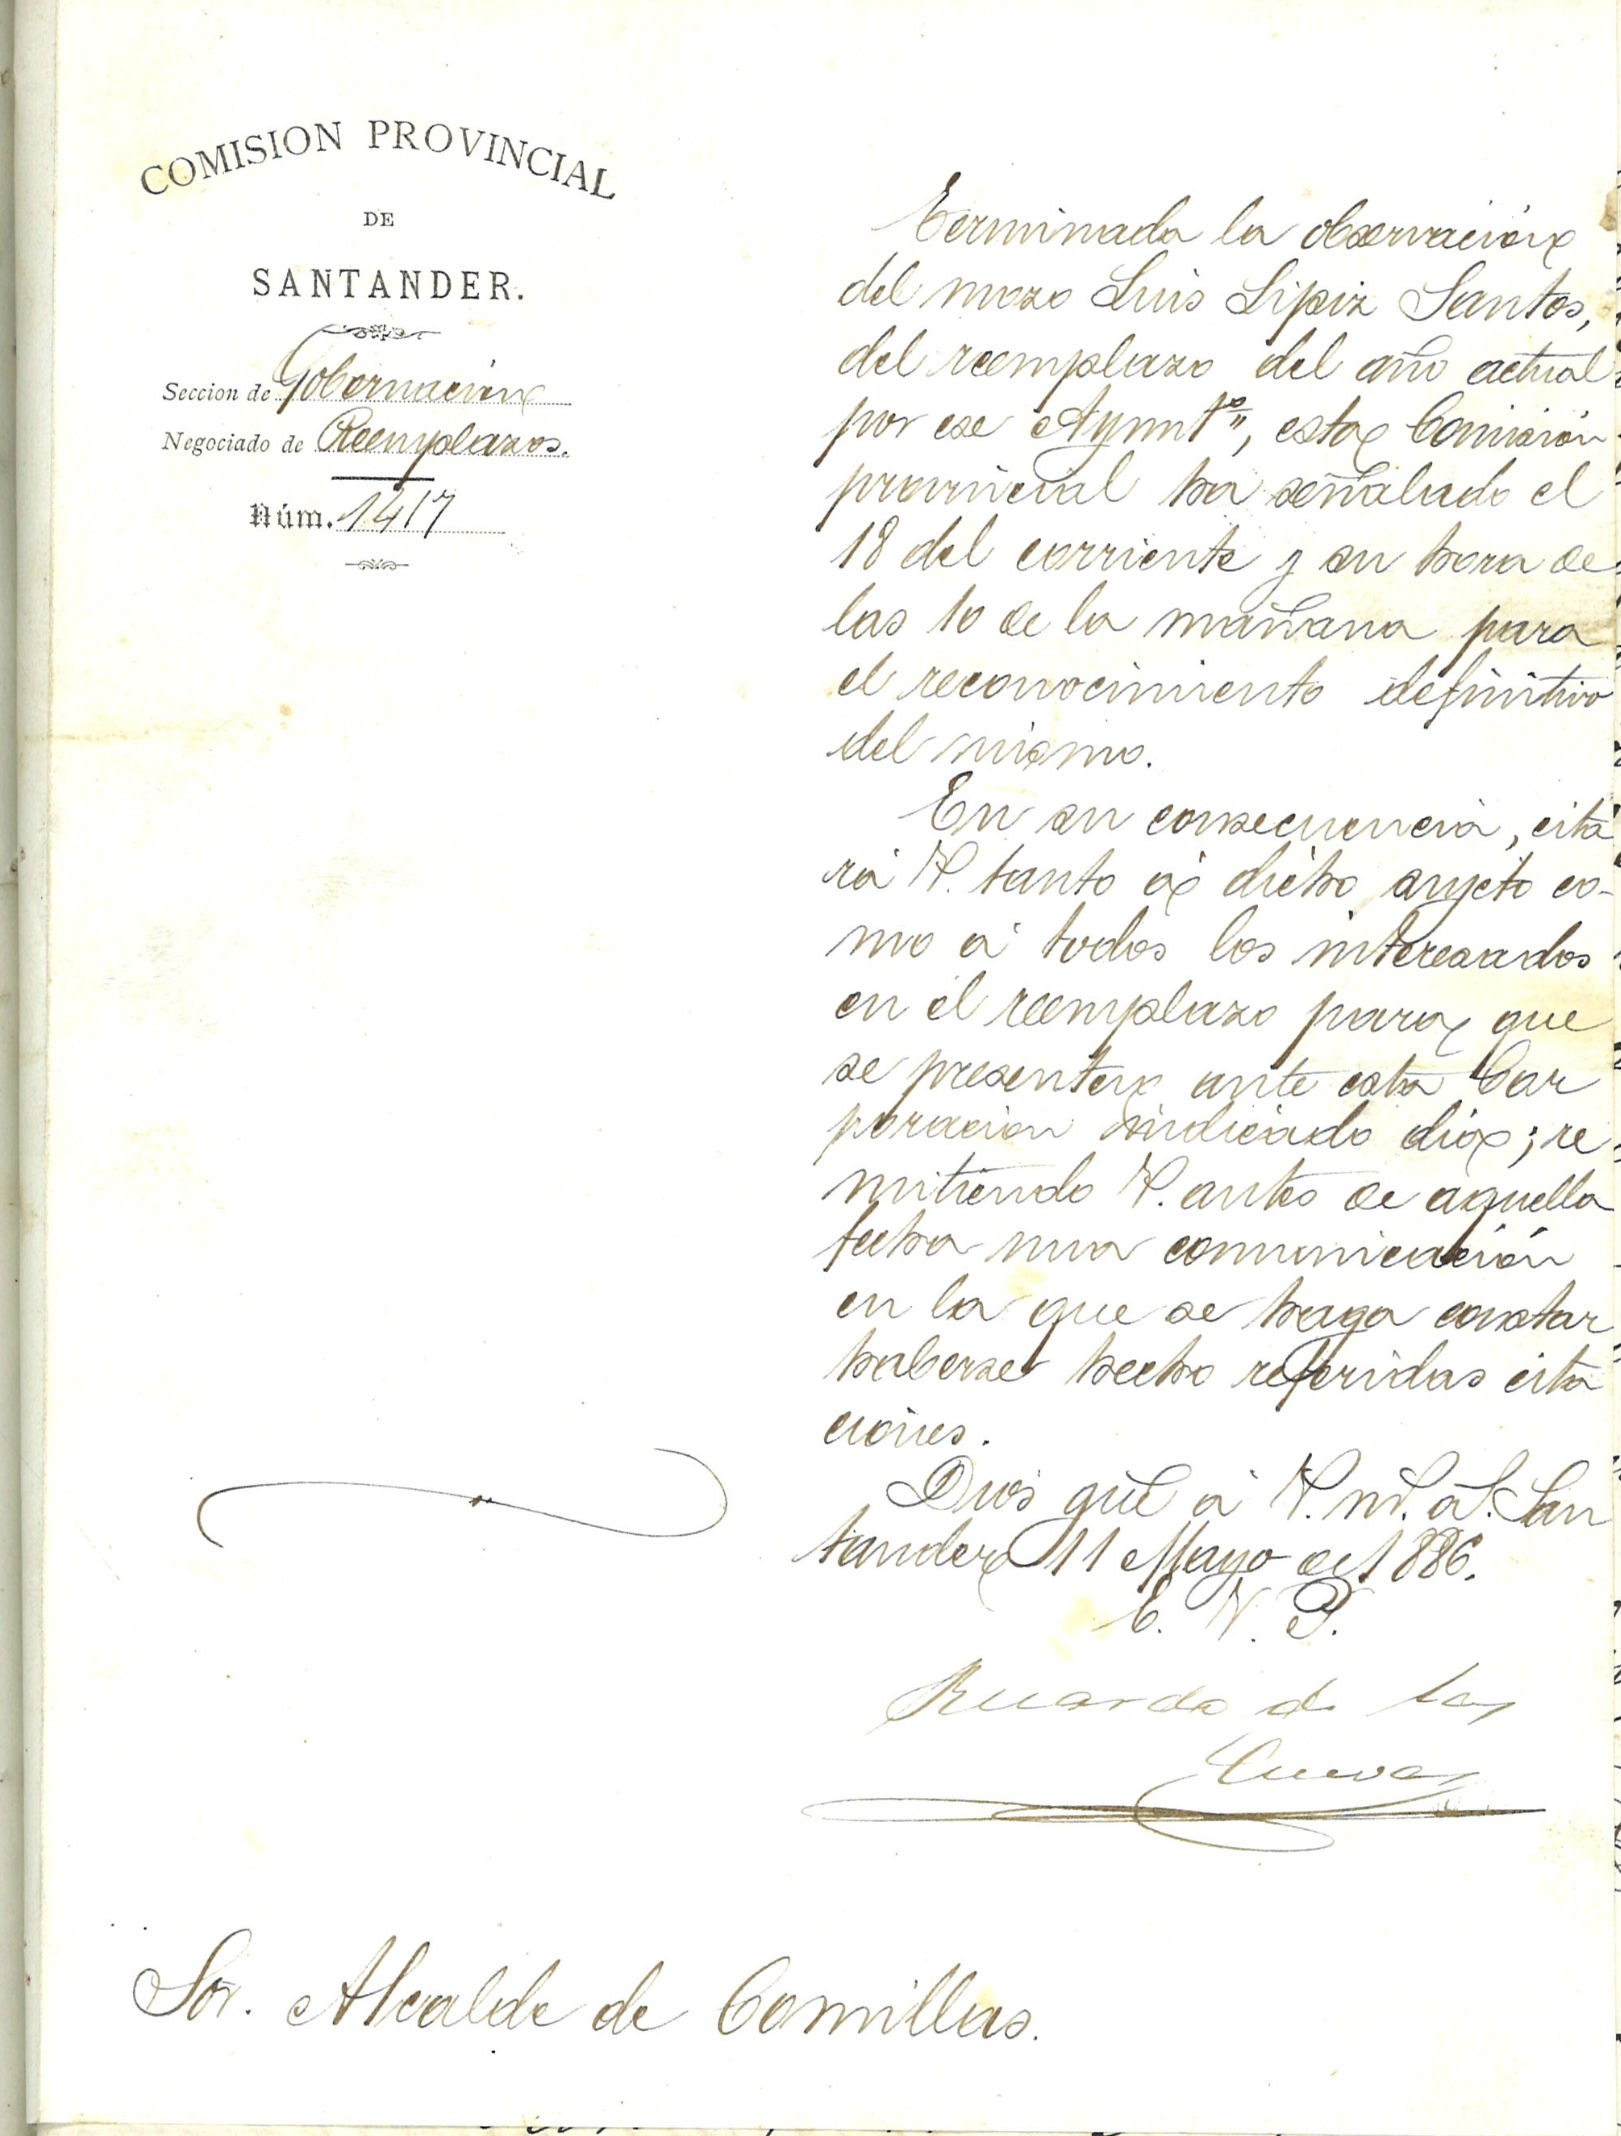 COMISION PROVINCIAL
DE
SANTANDER.
Seccion de Gobernación
Negociado de Reemplazos.
Núm. 1417
Terminada la observación
del mozo Luis Lipiz Santos,
del reemplazo del año actual
por ese Aynmtº, esta Comisión
provincial ha señalado el
18 del corriente y su hora de
las 10 de la mañana para
el reconocimiento definitivo
del mismo.
En su consecuencia, cita
rá V. tanto á dicho sujeto co-
mo á todos los interesados
en el reemplazo para que
se presenten ante esta Cor
poracion indicado dia; re
mitiendo V. antes de aquella
fecha una comunicación
en la que se haga constar
haberse hecho referidas cita
ciones.
Dios gue á V. m. a. San
tander 11 Mayo de 1886.
E. V. P.
Ricardo de las
Cuevas
Sor. Alcalde de Comillas.